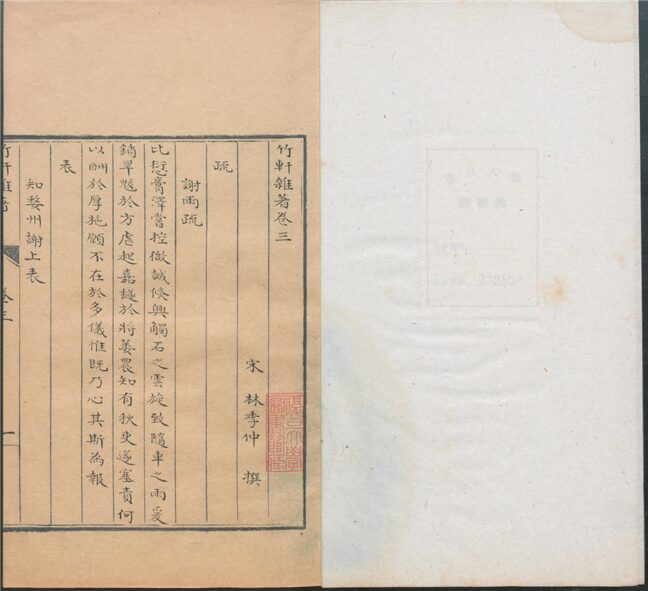 竹軒雜著卷三
宋 林季仲 撰
疏
謝雨疏
比愆膏澤嘗控微誠倐興觸石之雲旋致隨車之雨爰
銷旱魃於方虐起嘉穟於將萎農知有秋吏遂塞責何
以酬於厚施願不在於多儀惟既乃心其斯為報
表
知婺州謝上表
竹軒雜著
卷三
一